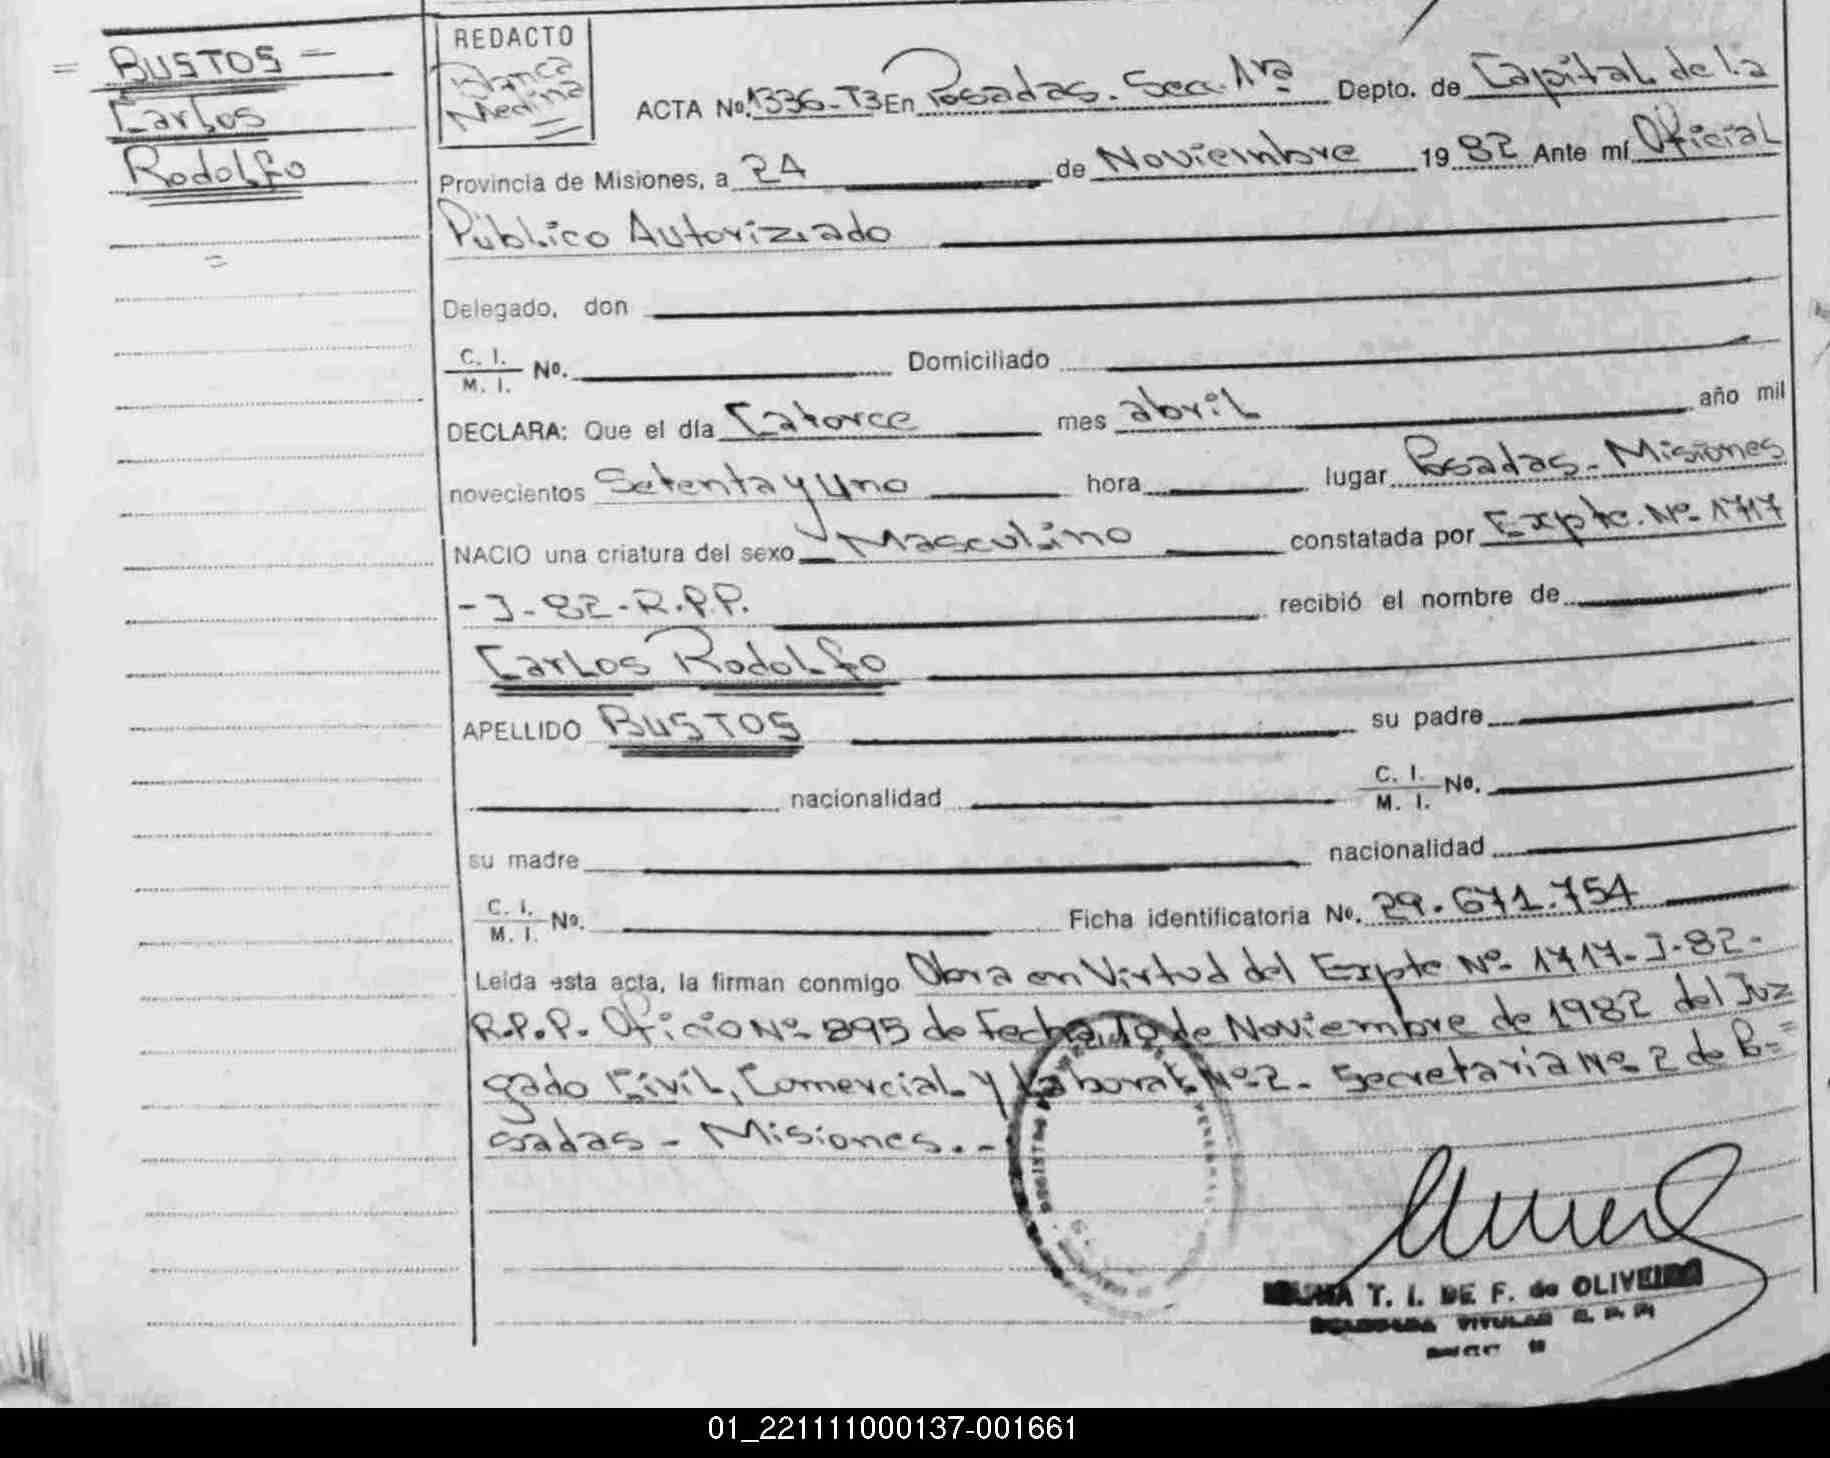 = BUSTOS =
Carlos
Rodolfo
=
REDACTO
Blanca
Medina
ACTA No. 1336-T3 En Posadas. Secc. 1ra Depto. de Capital de la
Provincia de Misiones, a 24 de Noviembre 1982 Ante mí Oficial
Público Autorizado
Delegado, don
C. I.
M. I. No. Domiciliado
DECLARA: Que el día Catorce mes abril año mil
novecientos Setenta y Uno hora lugar Posadas - Misiones
NACIO una criatura del sexo Masculino constatada por Expte. Nº 1717
-J-82-R.P.P. recibió el nombre de
Carlos Rodolfo
APELLIDO BUSTOS su padre
nacionalidad C. I.
M. I. No.
su madre nacionalidad
C. I.
M. I. No. Ficha identificatoria No. 29.671.754
Leida esta acta, la firman conmigo Obra en Virtud del Expte Nº 1717-J-82-
R.P.P. Oficio Nº 895 de Fecha 10 de Noviembre de 1982 del Juz
gado Civil, Comercial y Laboral Nº 2 - Secretaria Nº 2 de Po=
sadas - Misiones. -
T. I. DE F. de OLIVEIRA
TITULAR
01_221111000137-001661